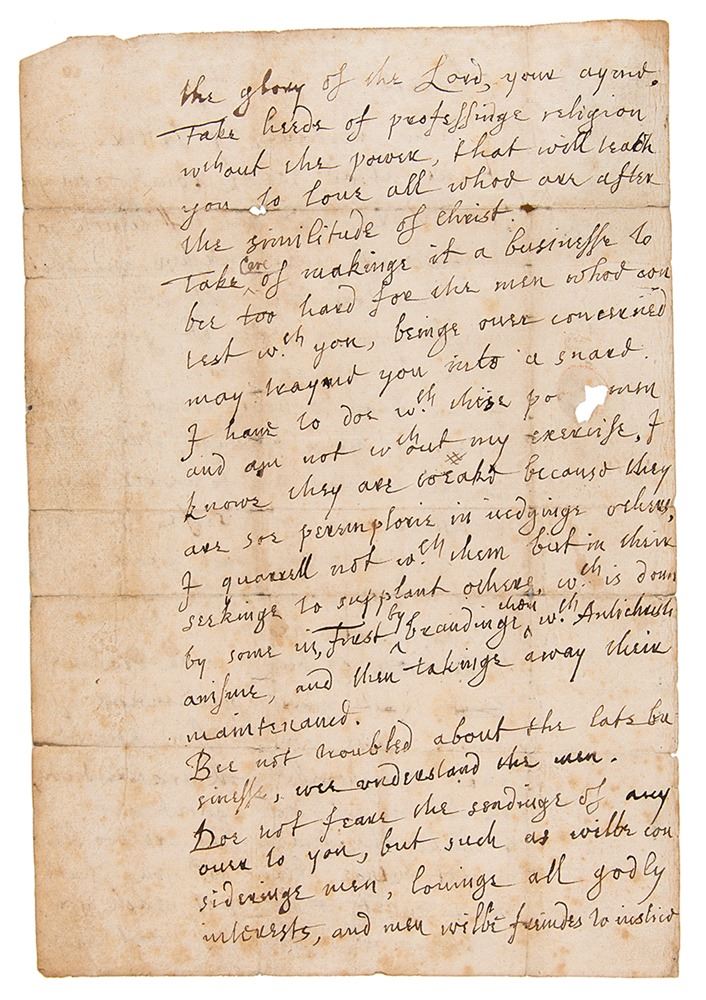 the glory of the Lord, your ayme.
Take heede of professinge religion
without the power, that will teach
you to love all whoe are after
the similitude of Christ.
Take Care of makinge it a businesse to
bee too hard for the men whoe con
test wth you, beinge over concerned
may trayne you into a snare.
I have to doe wth these po men
and am not wthout my exercise, I
knowe they are weake because they
are soe peremptorie in iudginge others,
I quarrell not wth them but in their
seekinge to supplant others, wch is donn
by some in, First by brandinge them wth Antichristi
anisme, and then takinge away their
maintenance.
Bee not troubled about the late bu
sinesse, wee understand the men.
Doe not feare the sendinge of any
over to you, but such as wilbe con
sideringe men, lovinge all godly
interests, and men wilbe freindes to iustice